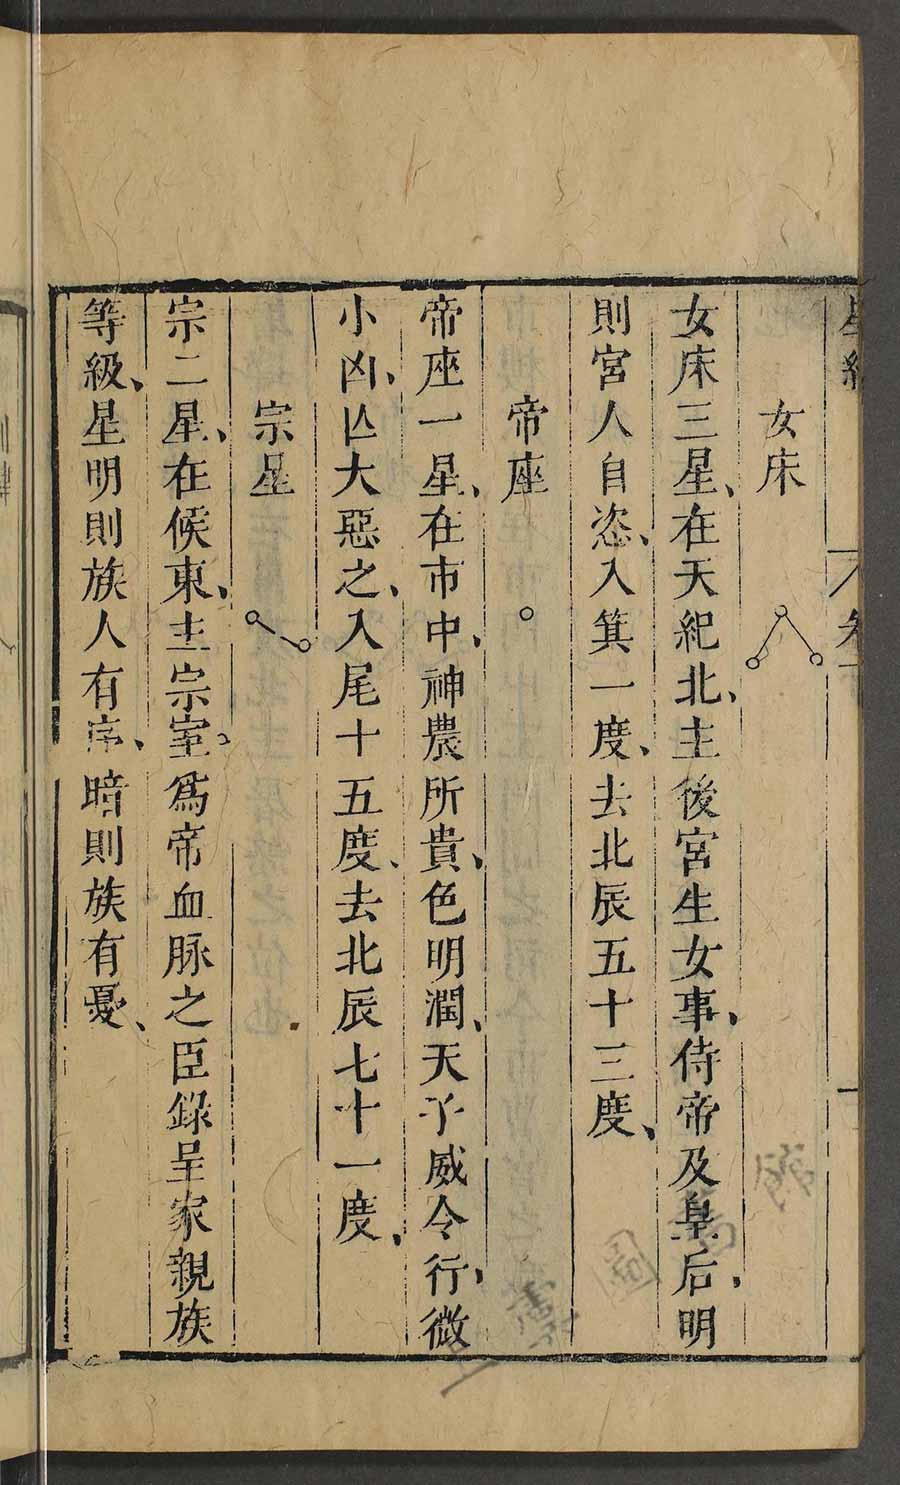 星經
卷下
女床
女床三星、在天紀北、主後宮生女事、侍帝及皇后、明
則宮人自恣、入箕一度、去北辰五十三度、
帝座
帝座一星、在市中、神農所貴、色明潤、天子威令行、微
小凶、亾大惡之、入尾十五度、去北辰七十一度、
宗星
宗二星、在候東、主宗室。爲帝血脉之臣錄呈家親族
等級、星明則族人有序、暗則族有憂、